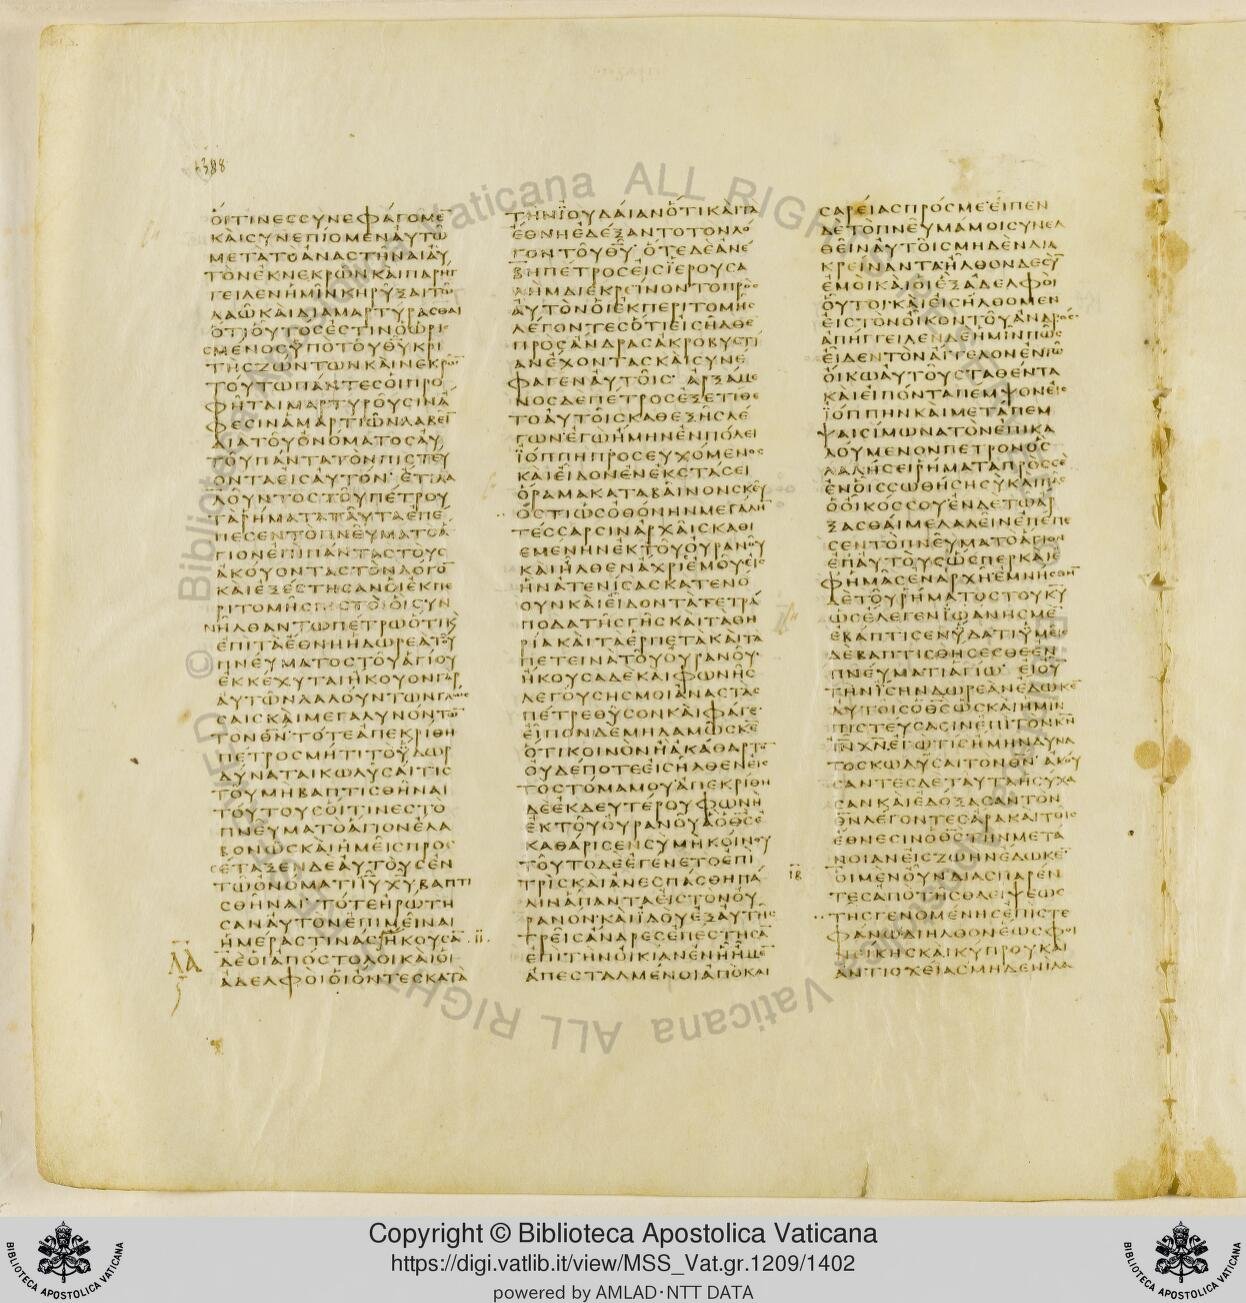 1388
ΟΙΤΙΝΕΣΣΥΝΕΦΑΓΟΜΕ̅
ΚΑΙΣΥΝΕΠΙΟΜΕΝΑΥΤΩ
ΜΕΤΑΤΟΑΝΑΣΤΗΝΑΙΑΥ
ΤΟΝΕΚΝΕΚΡΩΝΚΑΙΠΑΡΗΓ
ΓΕΙΛΕΝΗΜΙΝΚΗΡΥΞΑΙΤΩ
ΛΑΩΚΑΙΔΙΑΜΑΡΤΥΡΑΣΘΑΙ
ΟΤΙΟΥΤΟΣΕΣΤΙΝΟΩΡΙ
ΣΜΕΝΟΣΥΠΟΤΟΥΘΥ̅ΚΡΙ
ΤΗΣΖΩΝΤΩΝΚΑΙΝΕΚΡΩ̅
ΤΟΥΤΩΠΑΝΤΕΣΟΙΠΡΟ
ΦΗΤΑΙΜΑΡΤΥΡΟΥΣΙΝΑ
ΦΕΣΙΝΑΜΑΡΤΙΩΝΛΑΒΕΙ̅
ΔΙΑΤΟΥΟΝΟΜΑΤΟΣΑΥ
ΤΟΥΠΑΝΤΑΤΟΝΠΙΣΤΕΥ
ΟΝΤΑΕΙΣΑΥΤΟΝ· ΕΤΙΛΑ
ΛΟΥΝΤΟΣΤΟΥΠΕΤΡΟΥ
ΤΑΡΗΜΑΤΑΤΑΥΤΑΕΠΕ
ΠΕΣΕΝΤΟΠΝΕΥΜΑΤΟΑ
ΓΙΟΝΕΠΙΠΑΝΤΑΣΤΟΥΣ
ΑΚΟΥΟΝΤΑΣΤΟΝΛΟΓΟ̅
ΚΑΙΕΞΕΣΤΗΣΑΝΟΙΕΚΠΕ
ΡΙΤΟΜΗΣΠΙΣΤΟΙΟΙΣΥΝ
ΗΛΘΑΝΤΩΠΕΤΡΩΟΤΙΚ
ΕΠΙΤΑΕΘΝΗΗΔΩΡΕΑΤΟΥ
ΠΝΕΥΜΑΤΟΣΤΟΥΑΓΙΟΥ
ΕΚΚΕΧΥΤΑΙΗΚΟΥΟΝΓΑΡ
ΑΥΤΩΝΛΑΛΟΥΝΤΩΝΓΛΩΣ
ΣΑΙΣΚΑΙΜΕΓΑΛΥΝΟΝΤΩ̅
ΤΟΝΘΝ̅· ΤΟΤΕΑΠΕΚΡΙΘΗ
ΠΕΤΡΟΣΜΗΤΙΤΟΥΔΩΡ
ΔΥΝΑΤΑΙΚΩΛΥΣΑΙΤΙΣ
ΤΟΥΜΗΒΑΠΤΙΣΘΗΝΑΙ
ΤΟΥΤΟΥΣΟΙΤΙΝΕΣΤΟ
ΠΝΕΥΜΑΤΟΑΓΙΟΝΕΛΑ
ΒΟΝΩΣΚΑΙΗΜΕΙΣΠΡΟΣ
ΕΤΑΞΕΝΔΕΑΥΤΟΥΣΕΝ
ΤΩΟΝΟΜΑΤΙΙΥ̅ΧΥ̅ΒΑΠΤΙ
ΣΘΗΝΑΙ· ΤΟΤΕΗΡΩΤΗ
ΣΑΝΑΥΤΟΝΕΠΙΜΕΙΝΑΙ
ΗΜΕΡΑΣΤΙΝΑΣ· ΗΚΟΥΣΑ̅
ΛΑ ΔΕΟΙΑΠΟΣΤΟΛΟΙΚΑΙΟΙ
ΑΔΕΛΦΟΙΟΙΟΝΤΕΣΚΑΤΑ
ΤΗΝΙΟΥΔΑΙΑΝΟΤΙΚΑΙΤΑ
ΕΘΝΗΕΔΕΞΑΝΤΟΤΟΝΛΟ
ΓΟΝΤΟΥΘΥ̅· ΟΤΕΔΕΑΝΕ
ΒΗΠΕΤΡΟΣΕΙΣΙΕΡΟΥΣΑ
ΛΗΜΔΙΕΚΡΙΝΟΝΤΟΠΡΟΣ
ΑΥΤΟΝΟΙΕΚΠΕΡΙΤΟΜΗΣ
ΛΕΓΟΝΤΕΣΟΤΙΕΙΣΗΛΘΕ
ΠΡΟΣΑΝΔΡΑΣΑΚΡΟΒΥΣΤΙ
ΑΝΕΧΟΝΤΑΣΚΑΙΣΥΝΕ
ΦΑΓΕΝΑΥΤΟΙΣ· ΑΡΞΑΜΕ
ΝΟΣΔΕΠΕΤΡΟΣΕΞΕΤΙΘΕ
ΤΟΑΥΤΟΙΣΚΑΘΕΞΗΣΛΕ
ΓΩΝΕΓΩΗΜΗΝΕΝΠΟΛΕΙ
ΙΟΠΠΗΠΡΟΣΕΥΧΟΜΕΝΟΣ
ΚΑΙΕΙΔΟΝΕΝΕΚΣΤΑΣΕΙ
ΟΡΑΜΑΚΑΤΑΒΑΙΝΟΝΣΚΕΥ
ΟΣΤΙΩΣΟΘΟΝΗΝΜΕΓΑΛΗ̅
ΤΕΣΣΑΡΣΙΝΑΡΧΑΙΣΚΑΘΙ
ΕΜΕΝΗΝΕΚΤΟΥΟΥΡΑΝΟΥ
ΚΑΙΗΛΘΕΝΑΧΡΙΕΜΟΥΕΙΣ
ΗΝΑΤΕΝΙΣΑΣΚΑΤΕΝΟ
ΟΥΝΚΑΙΕΙΔΟΝΤΑΤΕΤΡΑ
ΠΟΔΑΤΗΣΓΗΣΚΑΙΤΑΘΗ
ΡΙΑΚΑΙΤΑΕΡΠΕΤΑΚΑΙΤΑ
ΠΕΤΕΙΝΑΤΟΥΟΥΡΑΝΟΥ·
ΗΚΟΥΣΑΔΕΚΑΙΦΩΝΗΣ
ΛΕΓΟΥΣΗΣΜΟΙΑΝΑΣΤΑΣ
ΠΕΤΡΕΘΥΣΟΝΚΑΙΦΑΓΕ·
ΕΙΠΟΝΔΕΜΗΔΑΜΩΣΚΕ̅
ΟΤΙΚΟΙΝΟΝΗΑΚΑΘΑΡΤΟ̅
ΟΥΔΕΠΟΤΕΕΙΣΗΛΘΕΝΕΙΣ
ΤΟΣΤΟΜΑΜΟΥΑΠΕΚΡΙΘΗ
ΔΕΕΚΔΕΥΤΕΡΟΥΦΩΝΗ
ΕΚΤΟΥΟΥΡΑΝΟΥΑΟΘΣ̅Ε
ΚΑΘΑΡΙΣΕΝΣΥΜΗΚΟΙΝΟΥ
ΤΟΥΤΟΔΕΕΓΕΝΕΤΟΕΠΙ
ΤΡΙΣΚΑΙΑΝΕΣΠΑΣΘΗΠΑ
ΛΙΝΑΠΑΝΤΑΕΙΣΤΟΝΟΥ
ΡΑΝΟΝ·ΚΑΙΙΔΟΥΕΞΑΥΤΗΣ
ΤΡΕΙΣΑΝΔΡΕΣΕΠΕΣΤΗΣΑ̅
ΕΠΙΤΗΝΟΙΚΙΑΝΕΝΗΗΜΕ̅
ΑΠΕΣΤΑΛΜΕΝΟΙΑΠΟΚΑΙ
ΣΑΡΕΙΑΣΠΡΟΣΜΕ·ΕΙΠΕΝ
ΔΕΤΟΠΝΕΥΜΑΜΟΙΣΥΝΕΛ
ΘΕΙΝΑΥΤΟΙΣΜΗΔΕΝΔΙΑ
ΚΡΕΙΝΑΝΤΑΗΛΘΟΝΔΕΣΥ̅
ΕΜΟΙΚΑΙΟΙΕΞΑΔΕΛΦΟΙ
ΟΥΤΟΙ·ΚΑΙΕΙΣΗΛΘΟΜΕΝ
ΕΙΣΤΟΝΟΙΚΟΝΤΟΥΑΝΔΡΟΣ·
ΑΠΗΓΓΕΙΛΕΝΔΕΗΜΙΝΠΩΣ
ΕΙΔΕΝΤΟΝΑΓΓΕΛΟΝΕΝΤΩ
ΟΙΚΩΑΥΤΟΥΣΤΑΘΕΝΤΑ
ΚΑΙΕΙΠΟΝΤΑΠΕΜΨΟΝΕΙΣ
ΙΟΠΠΗΝΚΑΙΜΕΤΑΠΕΜ
ΨΑΙΣΙΜΩΝΑΤΟΝΕΠΙΚΑ
ΛΟΥΜΕΝΟΝΠΕΤΡΟΝΟΣ
ΛΑΛΗΣΕΙΡΗΜΑΤΑΠΡΟΣΣΕ
ΕΝΟΙΣΣΩΘΗΣΗΣΥΚΑΙΠΑΣ
ΟΟΙΚΟΣΣΟΥΕΝΔΕΤΩΑΡ
ΞΑΣΘΑΙΜΕΛΑΛΕΙΝΕΠΕΠΕ
ΣΕΝΤΟΠΝΕΥΜΑΤΟΑΓΙΟ̅
ΕΠΑΥΤΟΥΣΩΣΠΕΡΚΑΙΕ
ΦΗΜΑΣΕΝΑΡΧΗΕΜΝΗΣΘΗ̅
ΔΕΤΟΥΡΗΜΑΤΟΣΤΟΥΚΥ̅
ΩΣΕΛΕΓΕΝΙΩΑΝΗΣΜΕ̅
ΕΒΑΠΤΙΣΕΝΥΔΑΤΙΥΜΕΙΣ
ΔΕΒΑΠΤΙΣΘΗΣΕΣΘΕΕΝ
ΠΝΕΥΜΑΤΙΑΓΙΩ· ΕΙΟΥ̅
ΤΗΝΙΣΗΝΔΩΡΕΑΝΕΔΩΚΕ̅
ΑΥΤΟΙΣΟΘΣ̅ΩΣΚΑΙΗΜΙΝ
ΠΙΣΤΕΥΣΑΣΙΝΕΠΙΤΟΝΚΝ̅
ΙΝ̅ΧΝ̅ΕΓΩΤΙΣΗΜΗΝΔΥΝΑ
ΤΟΣΚΩΛΥΣΑΙΤΟΝΘΝ̅· ΑΚΟΥ
ΣΑΝΤΕΣΔΕΤΑΥΤΑΗΣΥΧΑ
ΣΑΝΚΑΙΕΔΟΞΑΣΑΝΤΟΝ
ΘΝ̅ΛΕΓΟΝΤΕΣΑΡΑΚΑΙΤΟΙΣ
ΕΘΝΕΣΙΝΟΘΣ̅ΤΗΝΜΕΤΑ
ΝΟΙΑΝΕΙΣΖΩΗΝΕΔΩΚΕ̅
ΙΒ ΟΙΜΕΝΟΥΝΔΙΑΣΠΑΡΕΝ
ΤΕΣΑΠΟΤΗΣΘΛΕΙΨΕΩΣ
ΤΗΣΓΕΝΟΜΕΝΗΣΕΠΙΣΤΕ
ΦΑΝΩΔΙΗΛΘΟΝΕΩΣΦΟΙ
ΝΕΙΚΗΣΚΑΙΚΥΠΡΟΥΚΑΙ
ΑΝΤΙΟΧΕΙΑΣΜΗΔΕΝΙΛΑ
Copyright © Biblioteca Apostolica Vaticana
https://digi.vatlib.it/view/MSS_Vat.gr.1209/1402
powered by AMLAD·NTT DATA
BIBLIOTECA APOSTOLICA VATICANA
BIBLIOTECA APOSTOLICA VATICANA